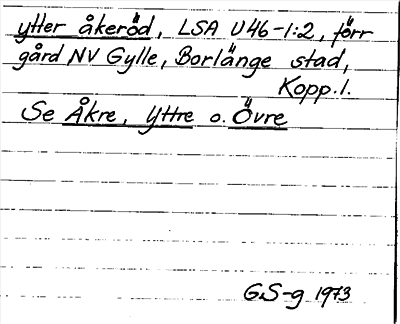 ytter åkeröd, LSA U46-1:2, förr
gård NV Gylle, Borlänge stad,
Kopp.l.
Se Åkre, Yttre o. Övre
G.S-g 1973